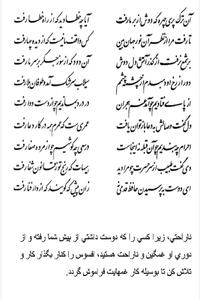 آن ترک پری چهره که دوش از بر ما رفت آیا چه خطا دید که از راه خطا رفت
تا رفت مرا از نظر آن نور جهان بین کس واقف ما نیست که از دیده چها رفت
بر شمع نرفت از گذر آتش دل دوش آن دود که از سوز جگر بر سر ما رفت
دور از رخ او دم بدم از چشمه چشمم سیلاب سرشک آمد و طوفان بلا رفت
از پای فتادیم چو آمد غم هجران در درد بماندیم چو از دست دوا رفت
دل گفت وصالش بدعا باز توان یافت عمریست که عمرم همه در کار دعا رفت
احرام چه بندیم چو آن قبله نه اینجاست در سعی چه کوشیم چو از مروه صفا رفت
دی گفت طبیب از سر حسرت چو مرا دید هیهات که رنج تو ز قانون شفا رفت
ای دوست بپرسیدن حافظ قدمی نه زان پیش که گویند که از دار فنا رفت
ناراحتي، زيرا کسي را که دوست داشتي از پيش شما رفته و از
دوري او غمگين و ناراحت هستيد، افسوس را کنار بگذار کار و
تلاش کن تا بوسيله کار غمهايت فراموش گردد.